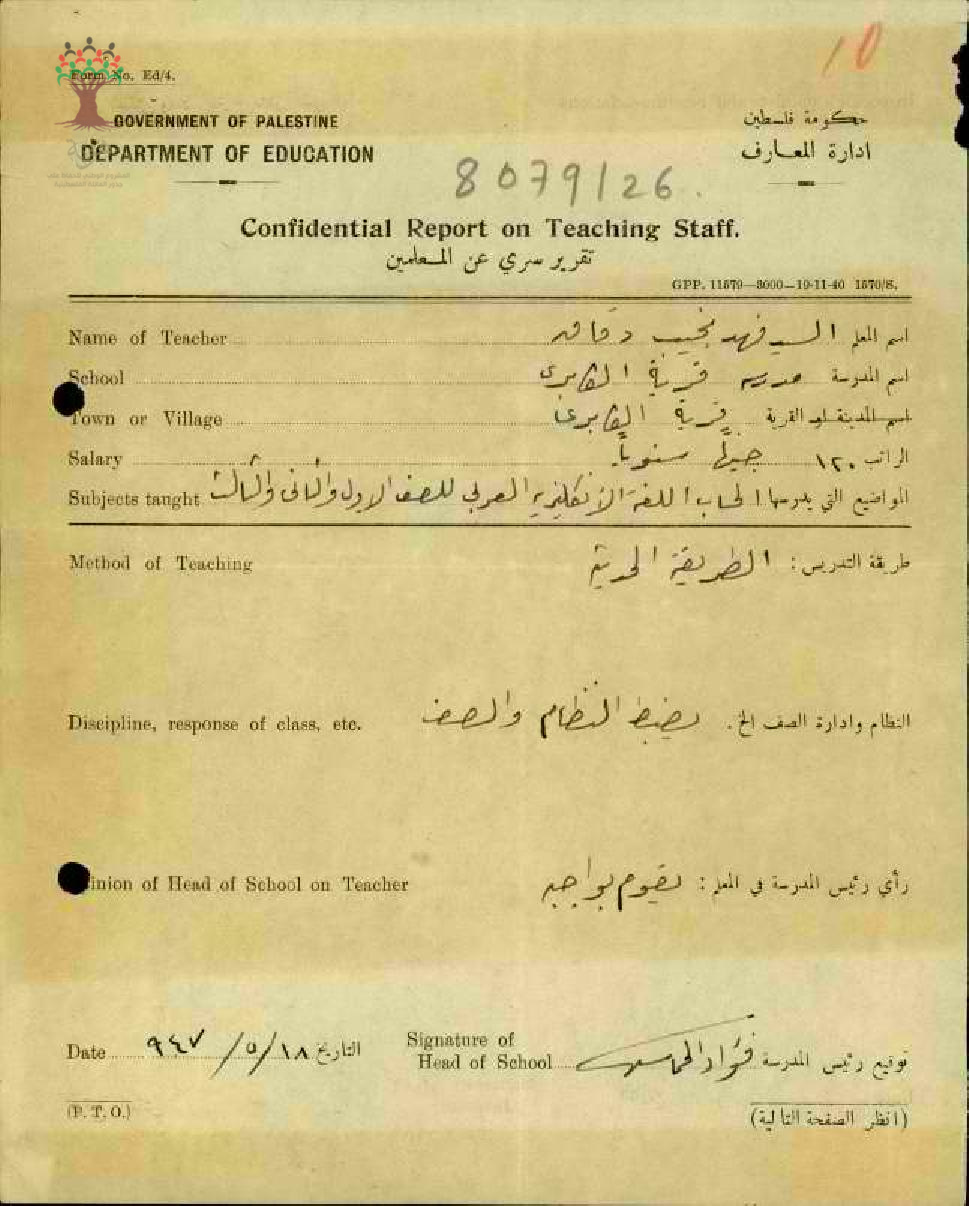 10
Form No. Ed/4.
GOVERNMENT OF PALESTINE
حكومة فلسطين
DEPARTMENT OF EDUCATION
ادارة المعارف
8079/26.
Confidential Report on Teaching Staff.
تقرير سري عن المعلمين
GPP. 11570—3000—19-11-40 1570/S.
Name of Teacher السيد فهد نجيب دقاقه اسم المعلم
School مدرسة قرية الكابري اسم المدرسة
Town or Village قرية الكابري اسم المدينة او القرية
Salary ١٢٠ جنيهاً سنوياً الراتب
Subjects taught الحساب اللغة الأنكليزيه العربي للصف الاول والثاني والثالث المواضيع التي يدرسها
Method of Teaching طريقة التدريس : الطريقة الحديثة
Discipline, response of class, etc. النظام وادارة الصف الخ . يضبط النظام والصف
inion of Head of School on Teacher رأي رئيس المدرسة في المعلم : يقوم بواجبه
Date ٩٤٧/٥/١٨ التاريخ Signature of
Head of School فؤاد توقيع رئيس المدرسة
(P. T. O.) (انظر الصفحة التالية)